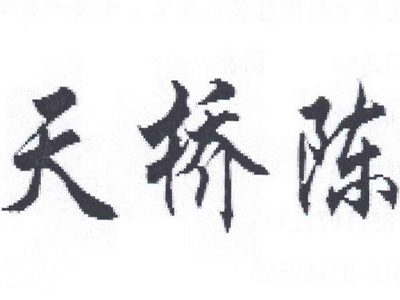 天桥陈